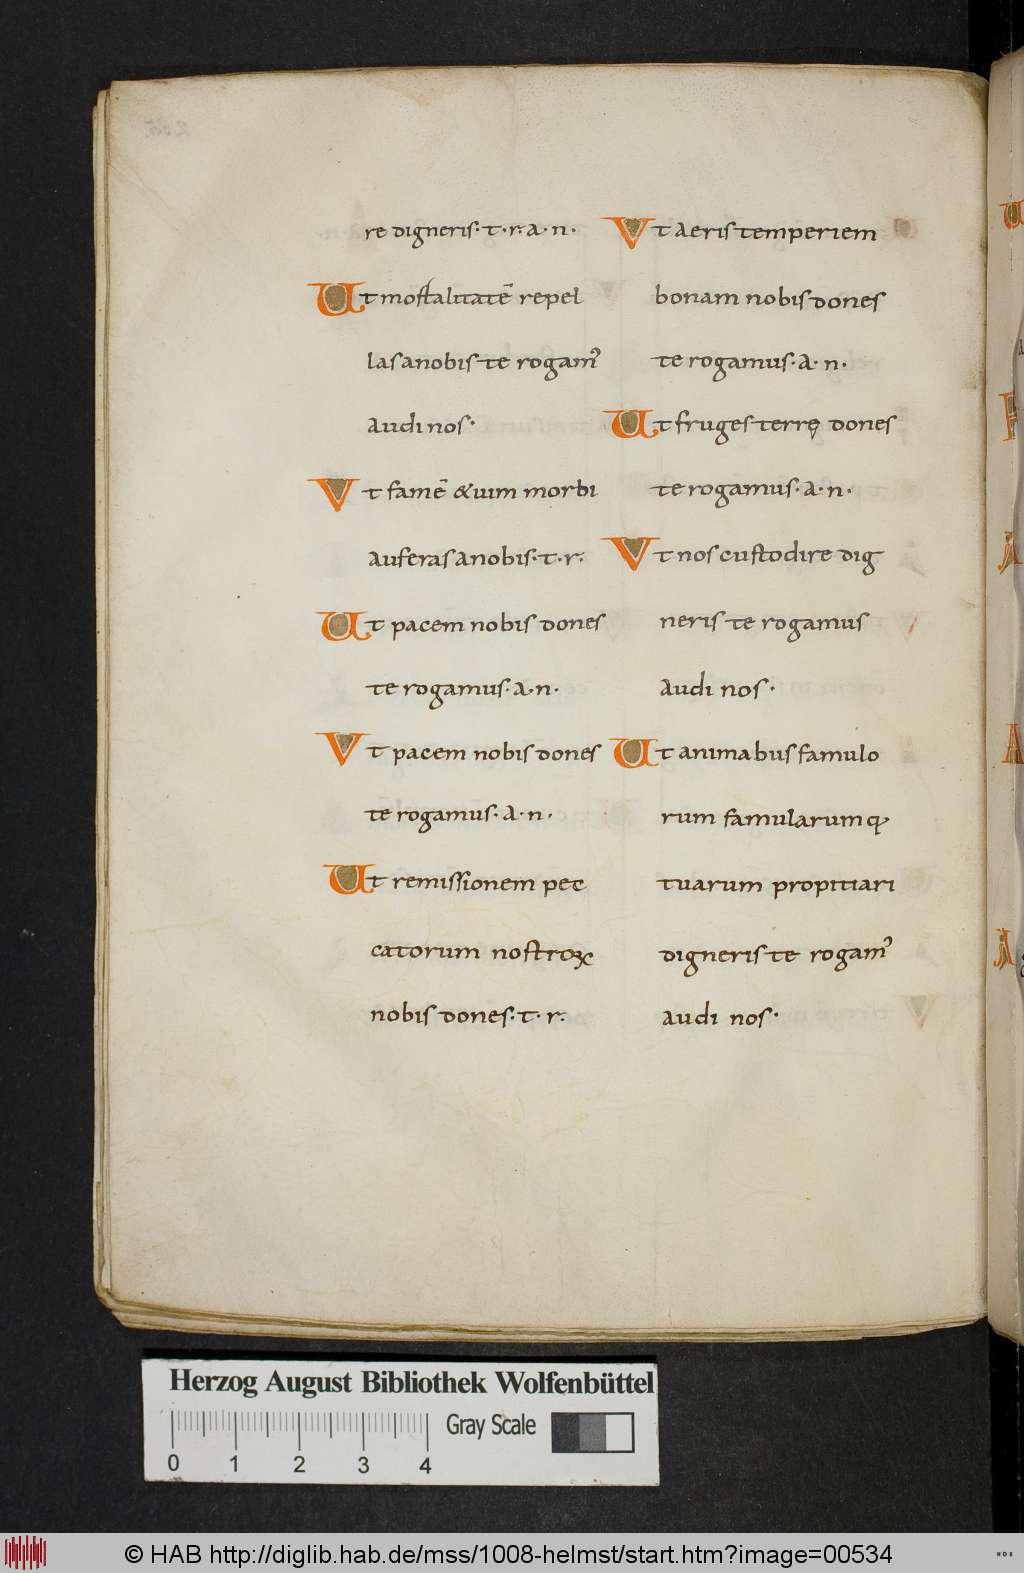 re digneris· t·r·a·n·
Ut mortalitatē repel
las a nobis te rogam᾽
audi nos·
Vt famē & uim morbi
auferas a nobis· t·r·
Ut pacem nobis dones
te rogamus· a·n·
Vt pacem nobis dones
te rogamus· a·n·
Ut remissionem pec
catorum nostroꝝ
nobis dones· t·r·
Vt aeris temperiem
bonam nobis dones
te rogamus· a·n·
Ut fruges terrę dones
te rogamus· a·n·
Vt nos custodire dig
neris te rogamus
audi nos·
Ut animabus famulo
rum famularumq;
tuarum propitiari
digneris te rogam᾽
audi nos·
Herzog August Bibliothek Wolfenbüttel
Gray Scale
0 1 2 3 4
© HAB http://diglib.hab.de/mss/1008-helmst/start.htm?image=00534